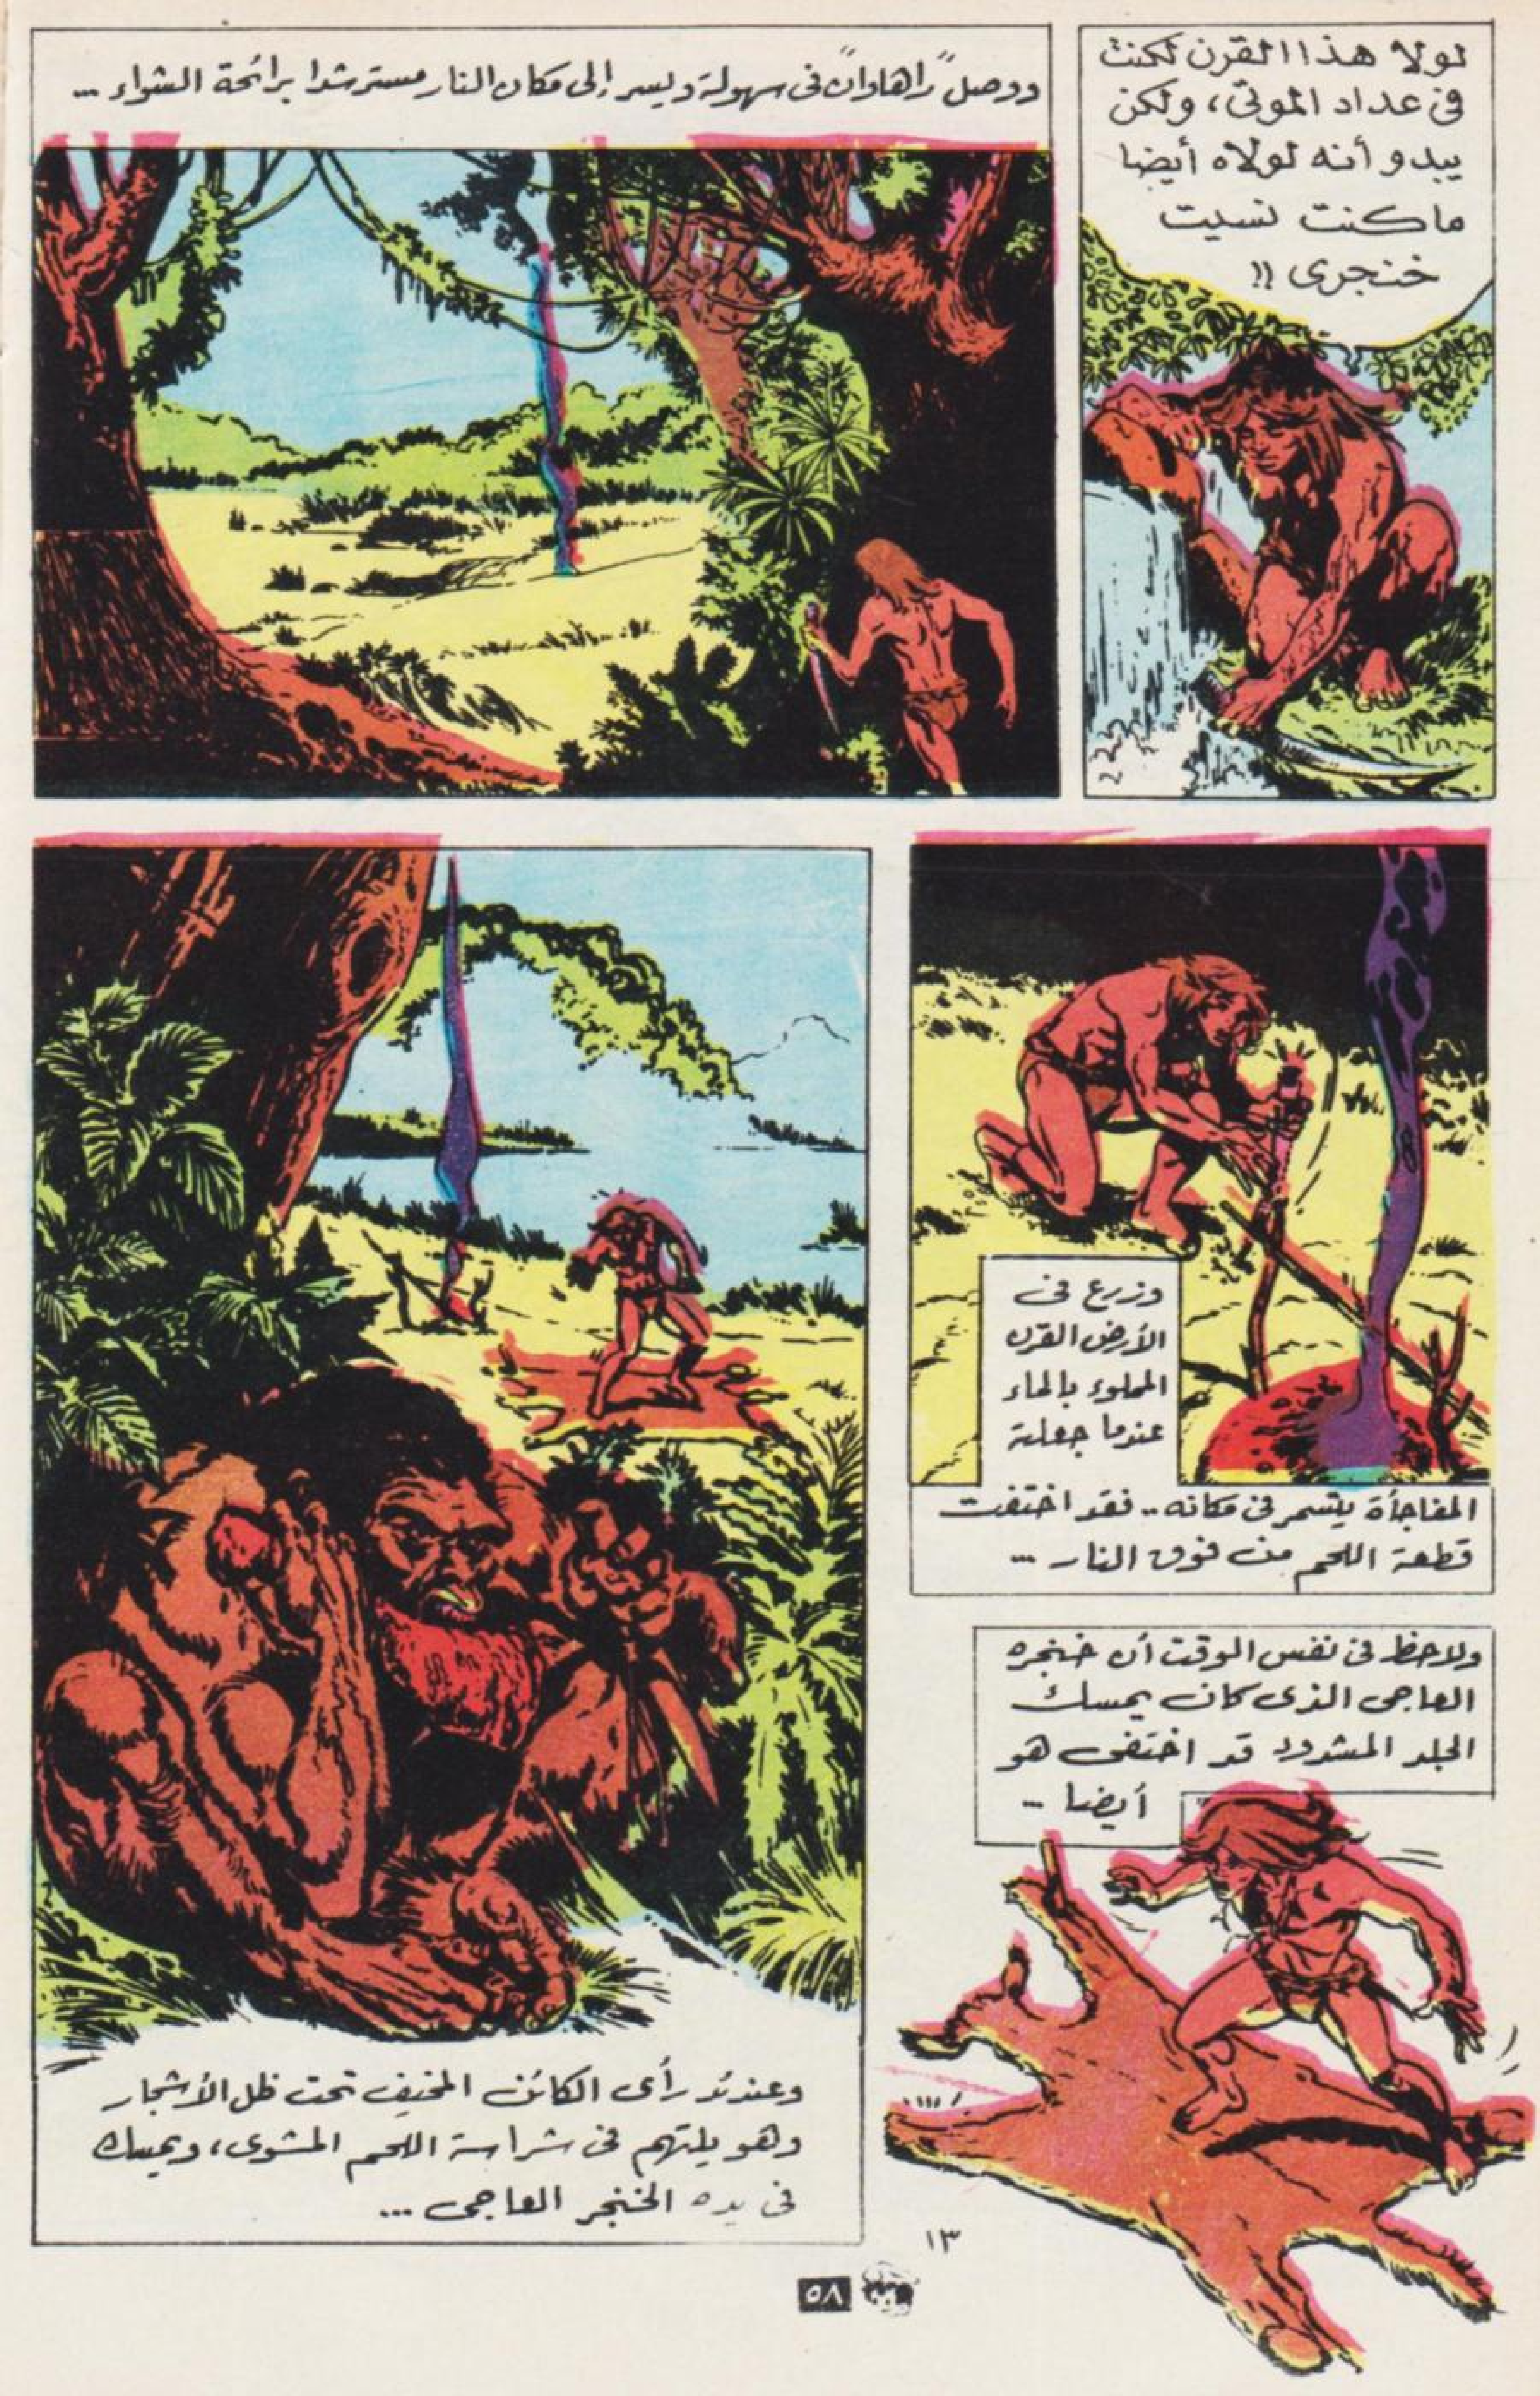 لولا هذا القرن لكنت
فى عداد الموتى، ولكن
يبدو أنه لولاه أيضا
ما كنت نسيت
خنجرى !!
ووصل "راهاوان" فى سهولة ويسر إلى مكان النار مسترشدا برائحة الشواء ...
وزرع فى
الأرض القرن
المملوء بالماء
عندما جعلته
المفاجأة يتسمر فى مكانه .. فقد اختفت
قطعة اللحم من فوق النار ...
ولاحظ فى نفس الوقت أن خنجره
العاجى الذى كان يمسك
الجلد المشدود قد اختفى هو
أيضا ..
وعندئذ رأى الكائن المخيف تحت ظل الأشجار
وهو يلتهم فى شراسة اللحم المشوى، ويمسك
فى يده الخنجر العاجى ...
١٣
٥٨